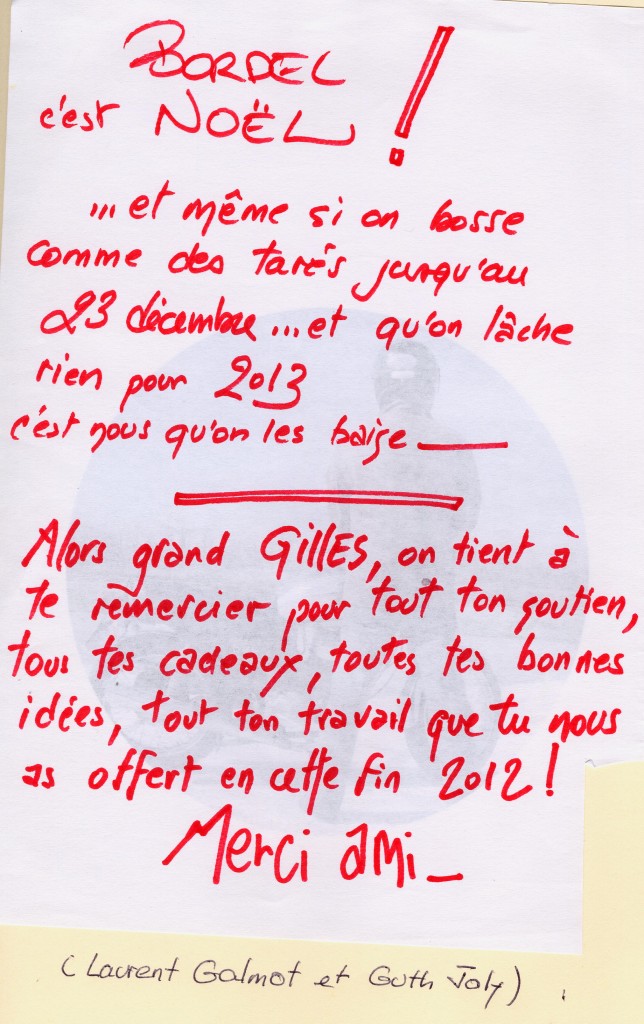 BORDEL !
c'est NOËL
... et même si on bosse
comme des tarés jusqu'au
23 décembre ... et qu'on lâche
rien pour 2013
c'est nous qu'on les baise
Alors grand GILLES, on tient à
te remercier pour tout ton soutien,
tous tes cadeaux, toutes tes bonnes
idées, tout ton travail que tu nous
as offert en cette fin 2012 !
Merci ami_
(Laurent Galmot et Guth Joly)